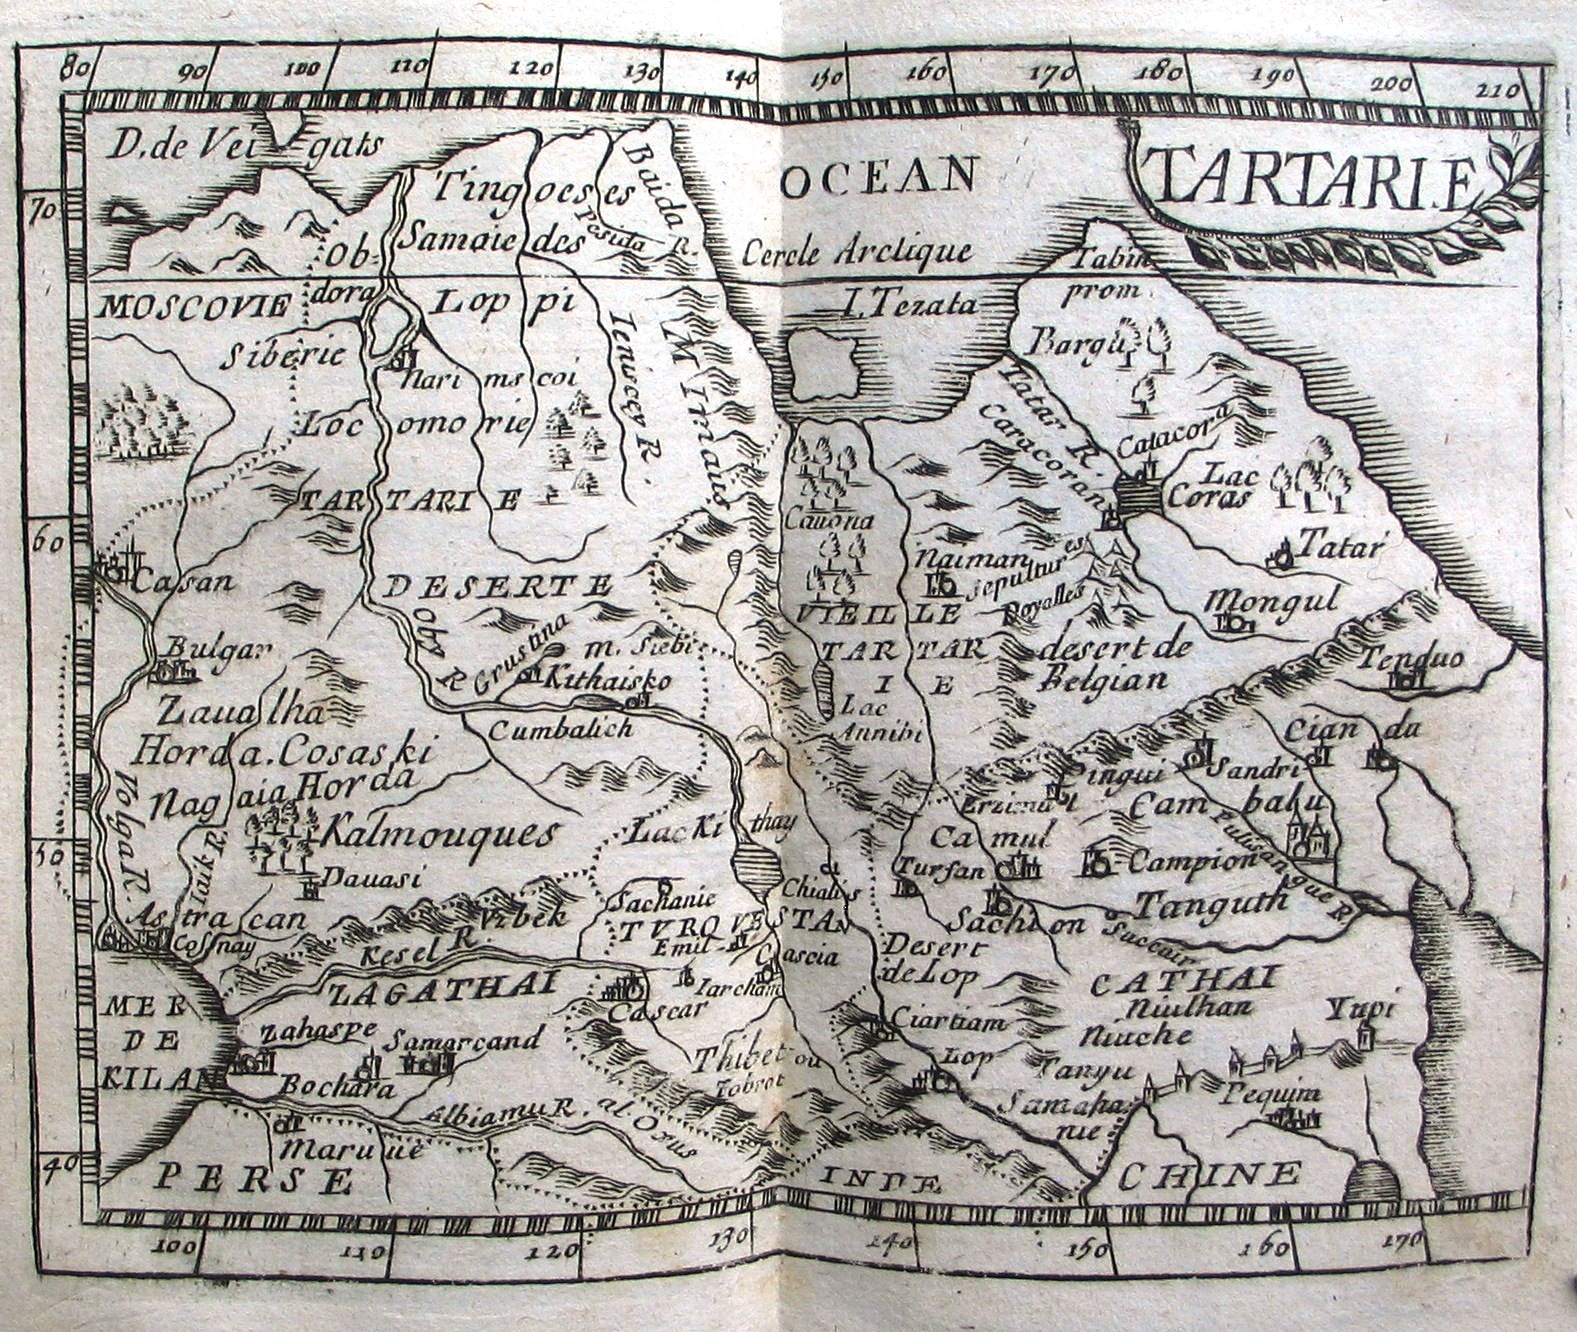 80 90 100 110 120 130 140 150 160 170 180 190 200 210
D. de Vei gats
TARTARIE
OCEAN
70
Tingoeses
Baida R.
Pesida
Obdora
Samaiedes
Cercle Arctique
Tabin prom.
MOSCOVIE
Loppi
I. Tezata
Siberie
Ienisçey R.
M Imaus
Bargu
Narimscoi
Tatar R.
Locomorie
Caracoran
Catacora
Lac Coras
TARTARIE
Cauona
60
Casan
DESERTE
Naiman
Sepultures Royalles
Tatar
Mongul
Oby R
Grustina
m. Siebi
VIEILLE TARTARIE
Bulgar
Kithaisko
desert de Belgian
Tenduo
Zauolha
Lac Annibi
Horda. Cosaski
Cumbalich
Cianda
Nagaia Horda
Pingui
Sandri
Volga R.
Erzimul
Cambalu
Iaik R.
Kalmouques
Lac Kithay
Camul
Pulisangue R
50
Dauasi
Chialis
Turfan
Campion
Sachanie
Tanguth
Astracan
Vzbek
TVRQVESTAN
Sachion
Cossnay
Kesel R.
Emil
Succair
Cascia
Desert de Lop
ZAGATHAI
Iarcham
CATHAI
Cascar
MER DE KILAN
Niulhan
Zahaspe
Ciartiam
Niuche
Yupi
Samarcand
Thibet ou Tobrot
Lop
Tanyu
Bochara
Pequim
Albiamu R. al Oxus
Samahanie
Maruuë
40
PERSE
INDE
CHINE
100 110 120 130 140 150 160 170